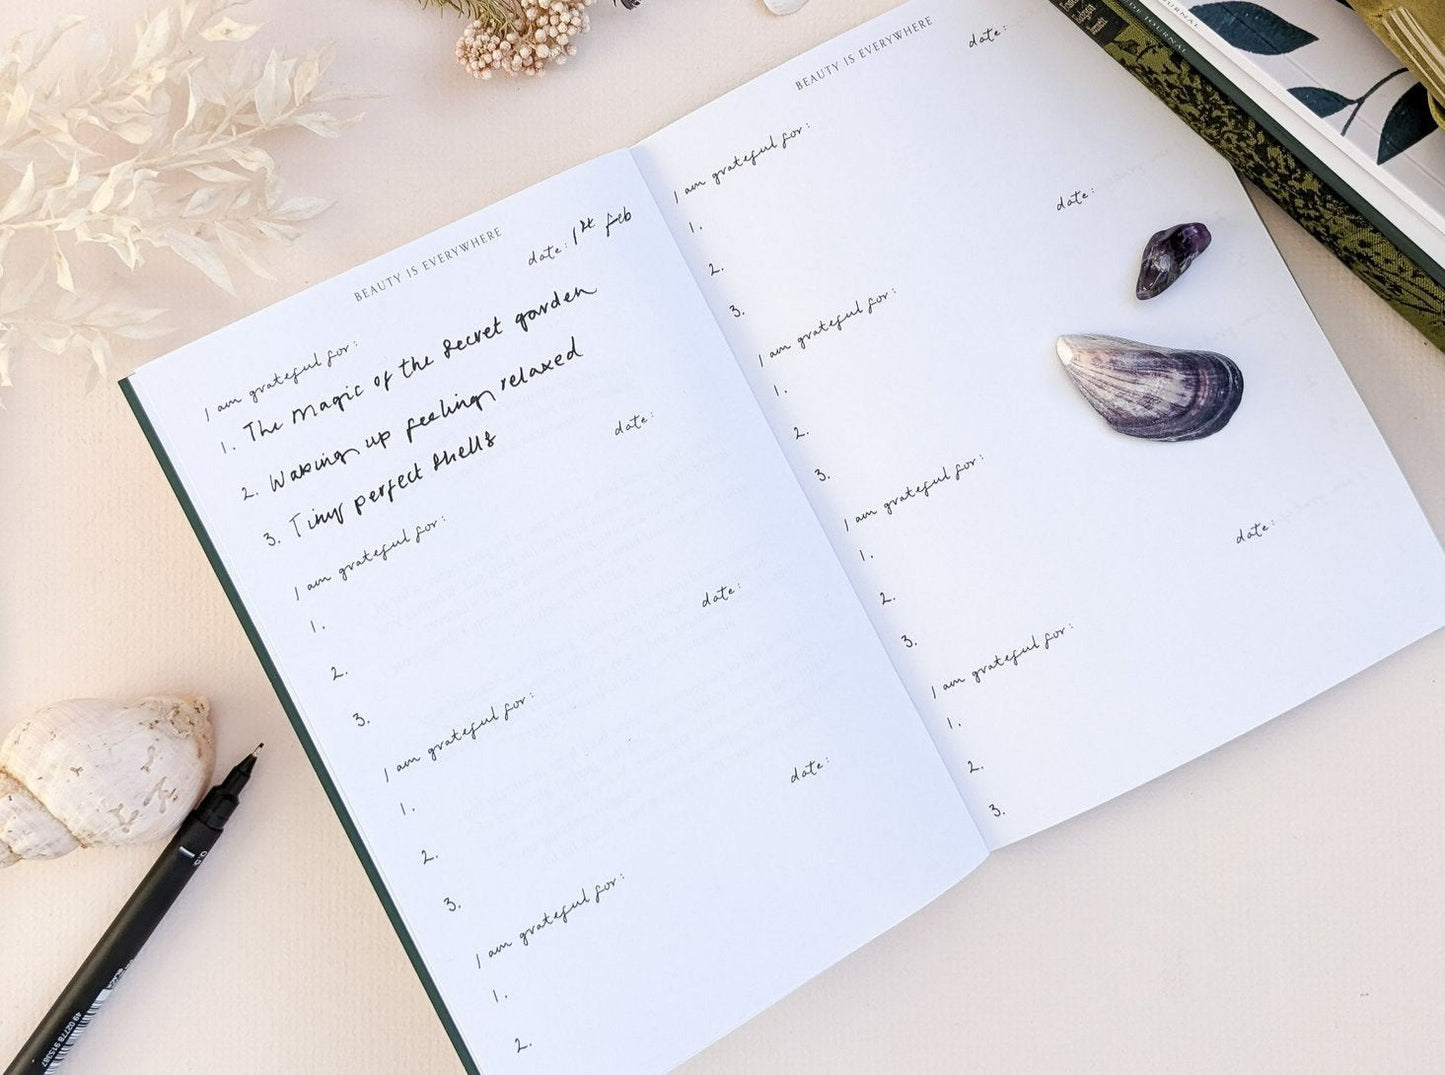 BEAUTY IS EVERYWHERE
date: 1st Feb
I am grateful for:
1. The Magic of the secret garden
2. Waking up feeling relaxed
3. Tiny perfect shells
date:
I am grateful for:
1.
2.
3.
date:
I am grateful for:
1.
2.
3.
date:
I am grateful for:
1.
2.
BEAUTY IS EVERYWHERE
date:
I am grateful for:
1.
2.
3.
date:
I am grateful for:
1.
2.
3.
I am grateful for:
1.
2.
3.
date:
I am grateful for:
1.
2.
3.
JOURNAL
DE JOURNAL
0.5
49 02778 915387